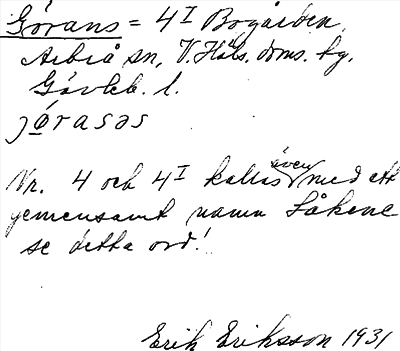 Görans = 4ᴵ Bogården,
Arbrå sn, V. Häls. doms. hg.
Gävleb. l.
jørasəs
Nr. 4 och 4ᴵ kallas även med ett
gemensamt namn Låkene
se detta ord!
Erik Eriksson 1931